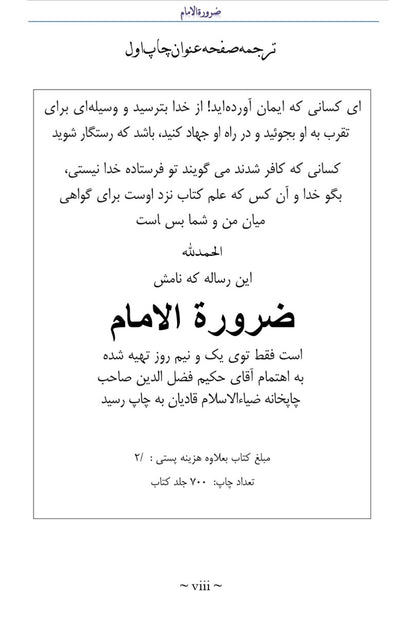 ضرورةالامام
ترجمه صفحه عنوان چاپ اول
ای کسانی که ایمان آورده‌اید! از خدا بترسید و وسیله‌ای برای
تقرب به او بجوئید و در راه او جهاد کنید، باشد که رستگار شوید
کسانی که کافر شدند می گویند تو فرستاده خدا نیستی،
بگو خدا و آن کس که علم کتاب نزد اوست برای گواهی
میان من و شما بس است
الحمدلله
این رساله که نامش
ضرورة الامام
است فقط توی یک و نیم روز تهیه شده
به اهتمام آقای حکیم فضل الدین صاحب
چاپخانه ضیاءالاسلام قادیان به چاپ رسید
مبلغ کتاب بعلاوه هزینه پستی : /۲
تعداد چاپ: ۷۰۰ جلد کتاب
~ viii ~